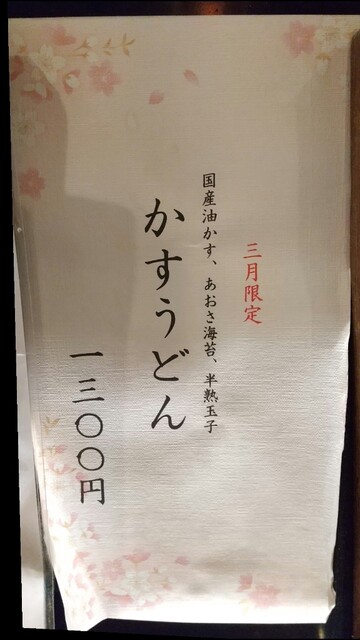 三月限定
国産油かす、あおさ海苔、半熟玉子
かすうどん
一三〇〇円